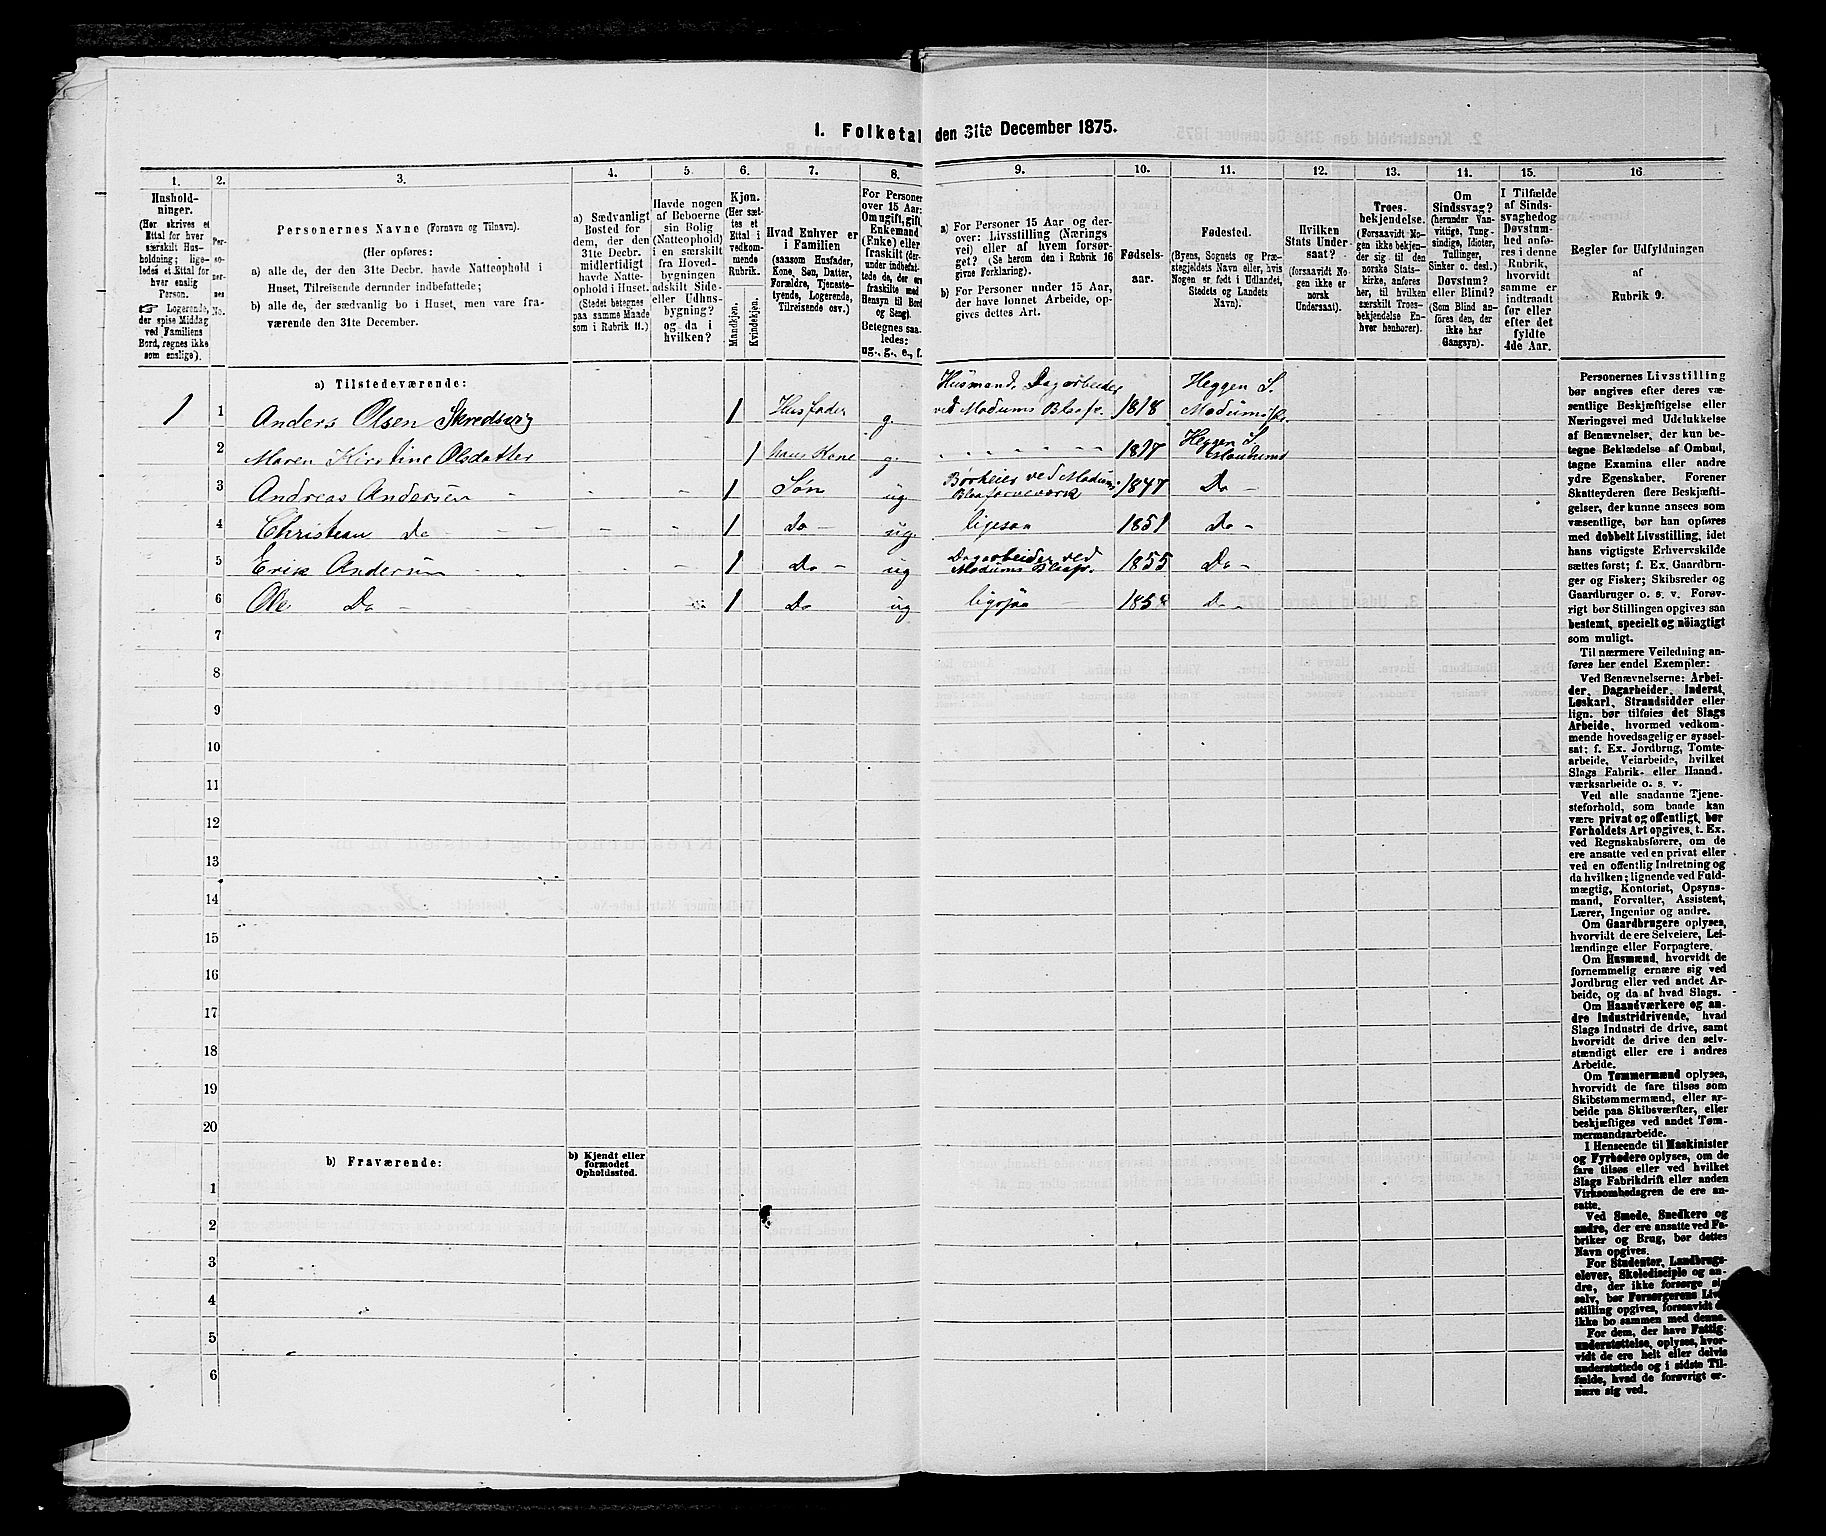 1. Folketal den 31te December 1875.
1.
Hushold-
ninger.
(Her skrives et
Ettal for hver
særskilt Hus-
holdning; lige-
ledes et Ettal for
hver enslig
Person.
☞ Logerende,
der spise Middag
ved Familiens
Bord, regnes ikke
som enslige).
2.
Per-
so-
ner-
nes
No.
3.
Personernes Navne (Fornavn og Tilnavn).
(Her opføres:
a) alle de, der den 31te Decbr. havde Natteophold i
Huset, Tilreisende derunder indbefattede;
b) alle de, der sædvanlig bo i Huset, men vare fra-
værende den 31te December.
4.
a) Sædvanligt
Bosted for
dem, der den
31te Decbr.
midlertidigt
havde Natte-
ophold i Huset.
(Stedet betegnes
paa samme Maade
som i Rubrik 11.)
5.
Havde nogen
af Beboerne
sin Bolig
(Natteophold)
i en særskilt
fra Hoved-
bygningen
adskilt Side-
eller Udhus-
bygning?
og da i
hvilken?
6.
Kjøn.
(Her sæt-
tes et
Ettal i
vedkom-
mende
Rubrik.
Mandkjøn.
Kvindekjøn.
7.
Hvad Enhver er
i Familien
(saasom Husfader,
Kone, Søn, Datter,
Forældre, Tjeneste-
tyende, Logerende,
Tilreisende osv.)
8.
For Personer
over 15 Aar:
Om ugift, gift,
Enkemand
(Enke) eller
fraskilt (der-
under indbefat-
tede de, der ere
fraskilte med
Hensyn til Bord
og Seng).
Betegnes saa-
ledes:
ug., g., e., f.
9.
a) For Personer 15 Aar og der-
over: Livsstilling (Nærings
vei) eller af hvem forsør-
get? (Se herom den i Rubrik 16
givne Forklaring).
b) For Personer under 15 Aar,
der have lønnet Arbeide, op-
gives dettes Art.
10.
Fødsels-
aar.
11.
Fødested.
(Byens, Sognets og Præ-
stegjeldets Navn eller, hvis
Nogen er født i Udlandet,
Stedets og Landets
Navn).
12.
Hvilken
Stats Under-
saat?
(forsaavidt No-
gen ikke er
norsk
Undersaat).
13.
Troes-
bekjendelse.
(Forsaavidt No-
gen ikke bekjen-
der sig til den
norske Stats-
kirke, anføres
her, til hvilken
særskilt Troes-
bekjendelse En-
hver henhører).
14.
Om
Sindssvag?
(herunder Van-
vittige, Tung-
sindige, Idioter,
Tullinger,
Sinker o. desl.)
Døvstum?
eller Blind?
(Som Blind an-
føres den, der
ikke har
Gangsyn).
15.
I Tilfælde
af Sinds-
svaghed og
Døvstum-
hed anfø-
res i denne
Rubrik,
hvorvidt
samme er
indtraadt
før eller
efter det
fyldte
4de Aar.
16
Regler for Udfyldningen
af
Rubrik 9.
a) Tilstedeværende:
1 1 Anders Olsen Skredsvig 1 Husfader g. Husmand. Dagarbeider ved Modums Blaafv. 1818 Heggen S. Modums Pr.
2 Maren Kirstine Olsdatter 1 hans Kone g. Heggen S. Modums
3 Andreas Andersen 1 Søn ug ved Modums Blaafarveværk 1847 Do
4 Christian Do 1 Do ug. ligesaa 1851 Do
5 Erik Andersen 1 Do ug Dagarbeider ved Modums Blaafv. 1855 Do
6 Ole Do 1 Do ug ligesaa 1858 Do
7
8
9
10
11
12
13
14
15
16
17
18
19
20
b) Fraværende:
b) Kjendt eller
formodet
Opholdssted.
1
2
3
4
5
6
Personernes Livsstilling
bør angives efter deres væ-
sentlige Beskjæftigelse eller
Næringsvei med Udelukkelse
af Benævnelser, der kun be-
tegne Beklædelse af Ombud,
tagne Examina eller andre
ydre Egenskaber. Forener
Skatteyderen flere Beskjæfti-
gelser, der kunne ansees som
væsentlige, bør han opføres
med dobbelt Livsstilling, idet
hans vigtigste Erhvervskilde
sættes først; f. Ex. Gaardbru-
ger og Fisker; Skibsreder og
Gaardbruger o. s. v. Forøv-
rigt bør Stillingen opgives saa
bestemt, specielt og nøiagtigt
som muligt.
Til nærmere Veiledning an-
føres her endel Exempler:
Ved Benævnelserne: Arbei-
der, Dagarbeider, Inderst,
Løskarl, Strandsidder eller
lign. bør tilføies det Slags
Arbeide, hvormed vedkom-
mende hovedsagelig er syssel-
sat; f. Ex. Jordbrug, Tomte-
arbeide, Veiarbeide, hvilket
Slags Fabrik- eller Haand-
værksarbeide o. s. v.
Ved alle saadanne Tjene-
steforhold, som baade kan
være privat og offentligt, bør
Forholdets Art opgives, t. Ex.
ved Regnskabsførere, om de
ere ansatte ved en privat eller
ved en offentlig Indretning og
da hvilken; lignende ved Fuld-
mægtig, Kontorist, Opsyns-
mand, Forvalter, Assistent,
Lærer, Ingeniør og andre.
Om Gaardbrugere oplyses,
hvorvidt de ere Selveiere, Lei-
lændinge eller Forpagtere.
Om Husmænd, hvorvidt de
fornemmelig ernære sig ved
Jordbrug eller ved andet Ar-
beide, og da af hvad Slags.
Om Haandværkere og an-
dre Industridrivende, hvad
Slags Industri de drive, samt
hvorvidt de drive den selv-
stændigt eller ere i andres
Arbeide.
Om Tømmermænd oplyses,
hvorvidt de fare tilsøs som
Skibstømmermænd, eller ar-
beide paa Skibsværfter, eller
beskjæftiges ved andet Tøm-
mermandsarbeide.
I Henseende til Maskinister
og Fyrbødere oplyses, om de
fare tilsøs eller ved hvilket
Slags Fabrikdrift eller anden
Virksomhedsgren de ere an-
satte.
Ved Smede, Snedkere og
andre, der ere ansatte ved Fa-
briker og Brug, bør dettes
Navn opgives.
For Studenter, Landbrugs-
elever, Skoledisciple og an-
dre, der ikke forsørge sig
selv, bør Forsørgerens Liv-
stilling opgives, forsaavidt
ikke bo sammen med denne.
For dem, der have Fattig-
understøttelse, oplyses, hvor-
vidt de ere helt eller delvis
understøttede og i sidste Til-
fælde, hvad de forøvrigt er-
nære sig ved.